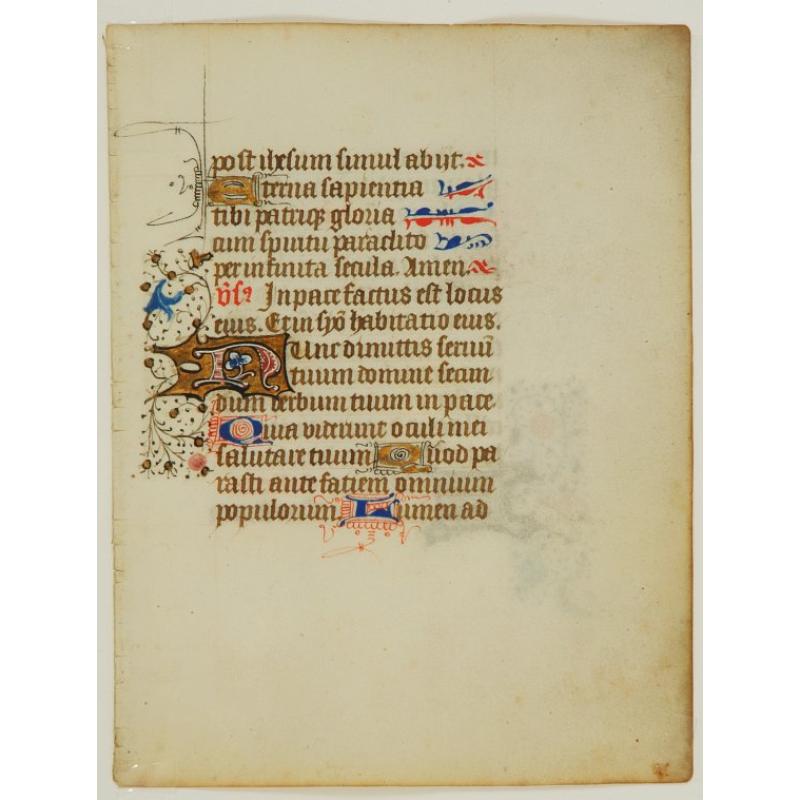 post ihesum simul abijt.
Eterna sapientia
tibi patriqz gloria
cum spiritu paraclito
per infinita secula. Amen.
v̄sꝰ In pace factus est locus
eius. Et in syō habitatio eius.
Nunc dimittis seruū
tuum domine secun
dum verbum tuum in pace
Quia viderunt oculi mei
salutare tuum Quod pa
rasti ante faciem omnium
populorum Lumen ad